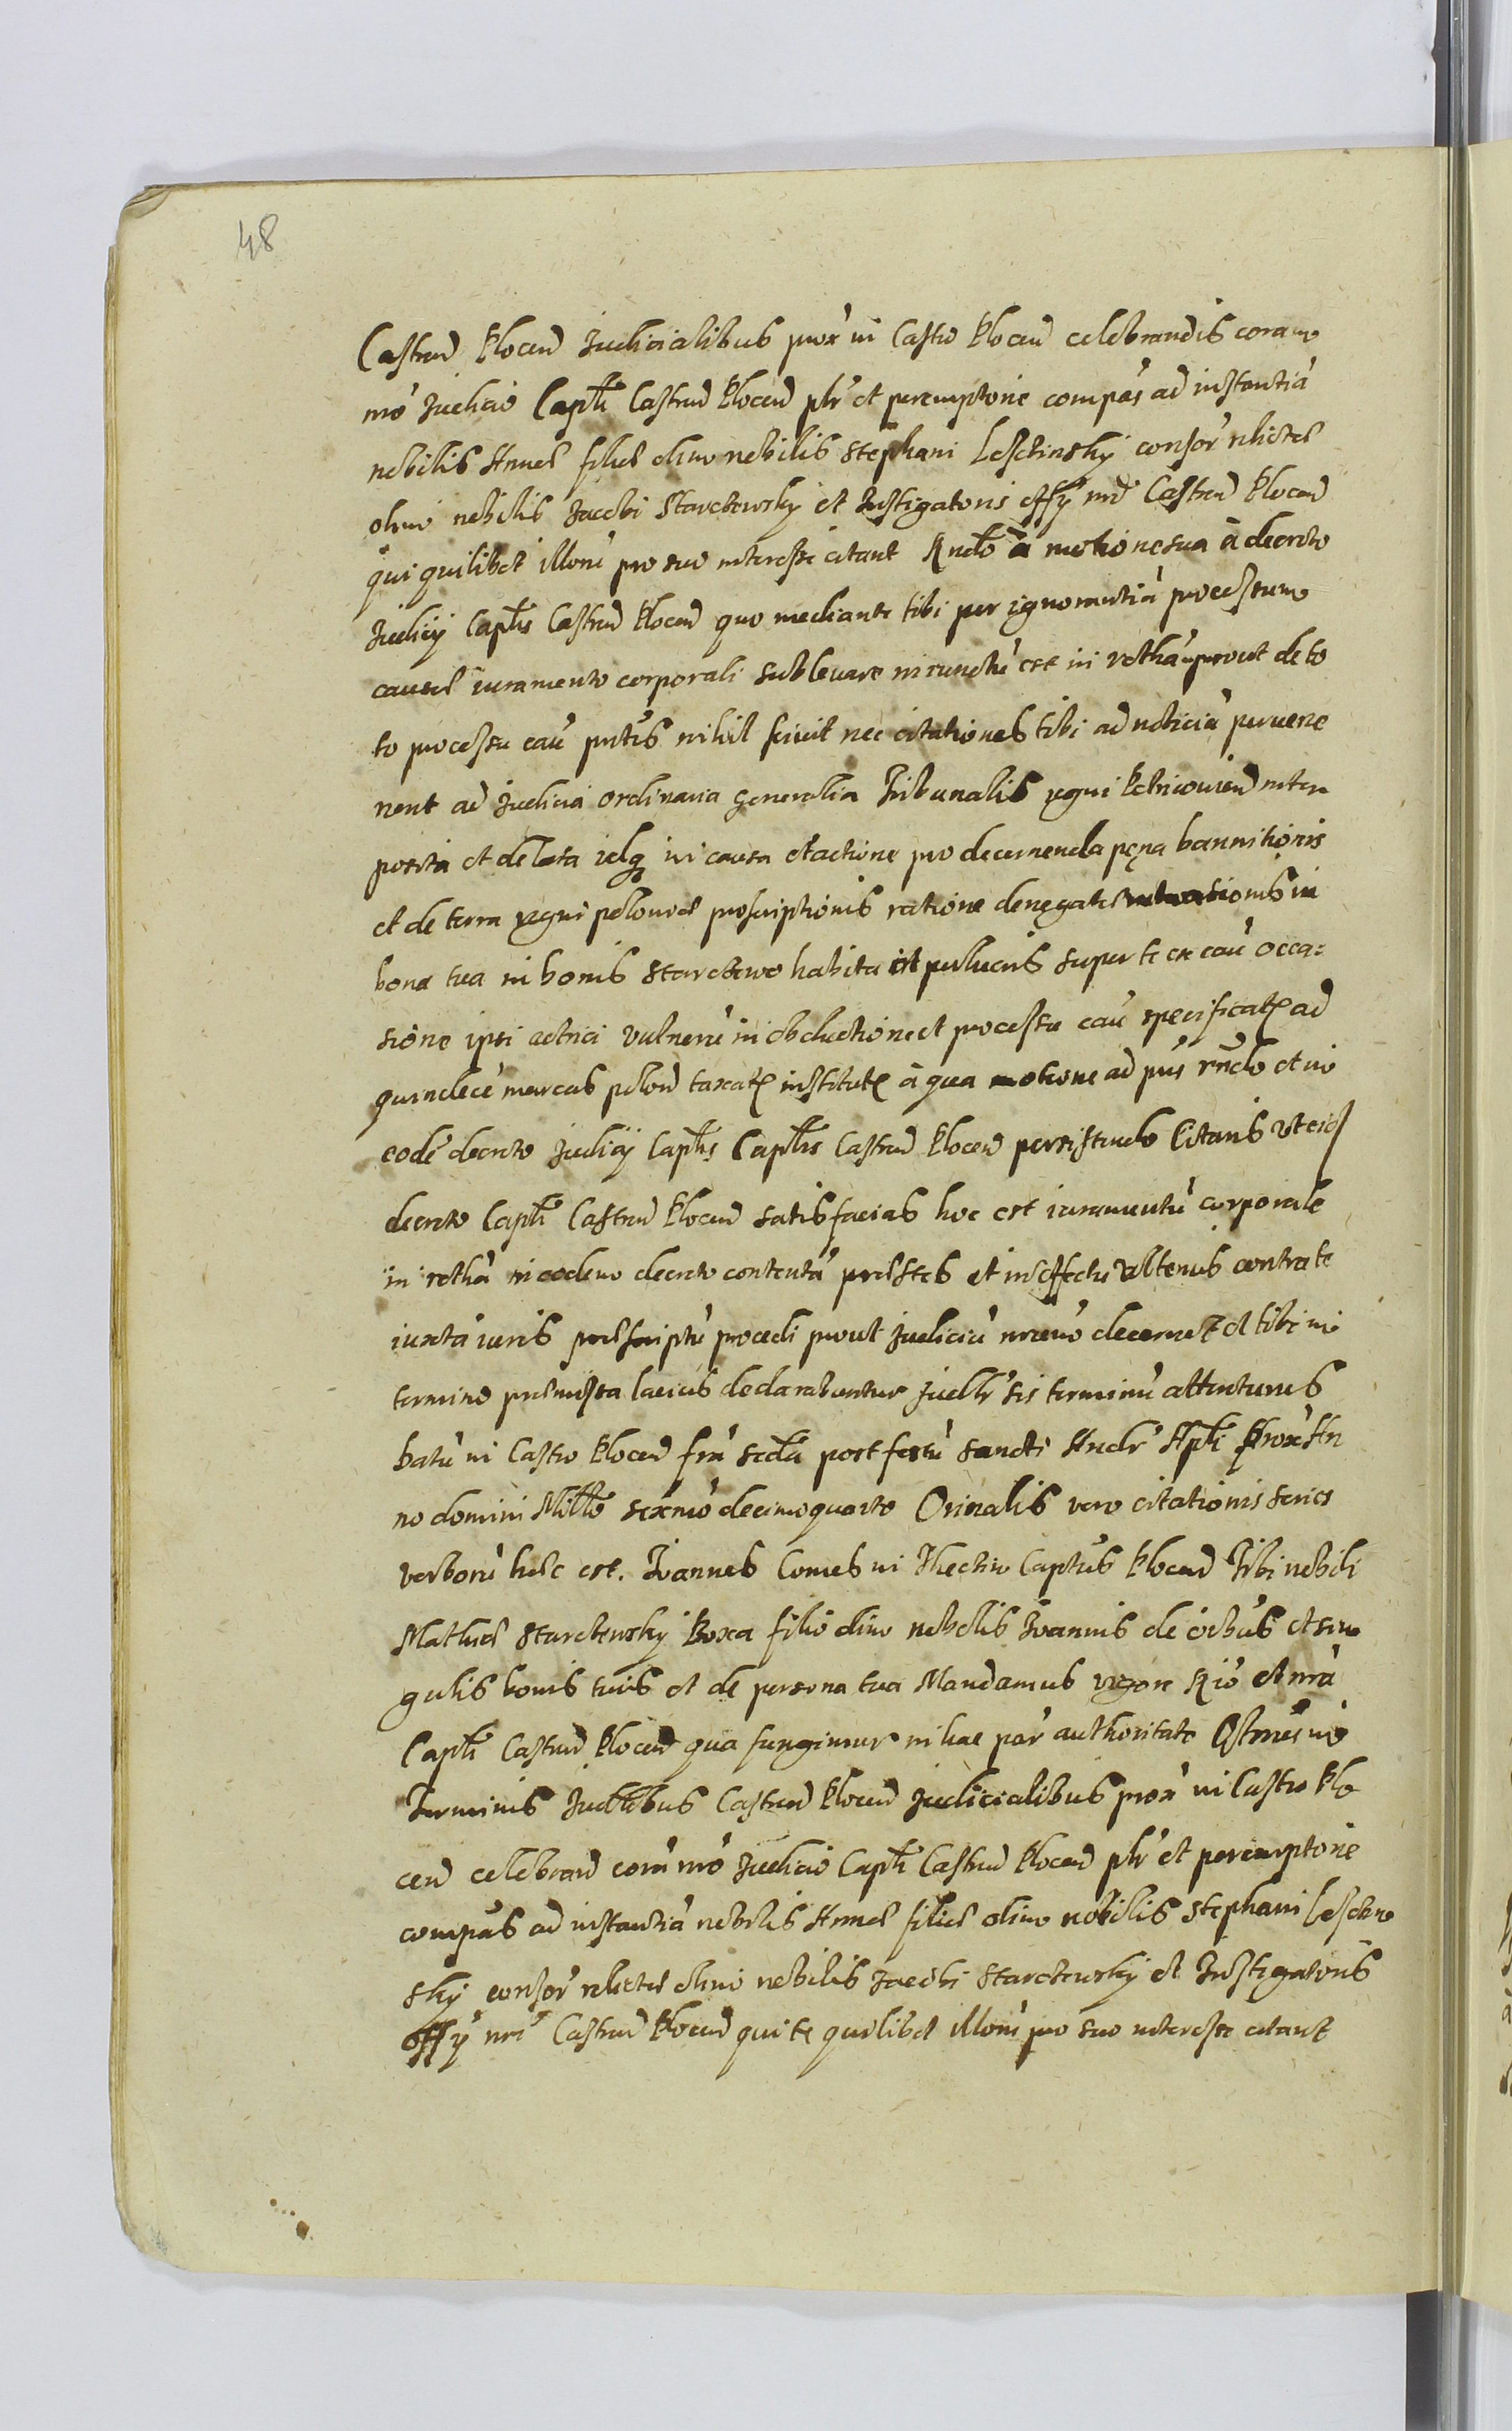 48
Castren Plocen Judicialibus prox in Castro Plocen celebrandis coram
nrō Judicio Capli Castren Plocen plr et peremptorie compās ad instantiā
nobilis Annæ filiæ olim nobilis Stephani Leschinsky consor relictæ
olim nobilis Jacobi Starczewsky et Instigatoris offy nrī Castren Plocen
qui quilibet illorū pro suo interesse citant Rndō à motione sua à decreto
Judicÿ Caplis Castren Plocen quo mediante tibi per ignorantiā processum
causæ iuramento corporali subleuare iniunctū est in rothā prout de to
to processu cau prntis nihil sciuit nec citationes tibi ad noticiā peruene
rent ad Judicia ordinaria generalia Tribunalis regni Petricouien inter
posita et delata idq in causa et actione pro decernenda pęna bannitionis
et de terra regni poloniæ proscriptionis ratione denegatæ intromissionis in
bona tua in bonis Starczewo habita et perlucris super te ex cau occa=
sione ipsi actrici vulnerū in obductione et processu cau specificatę ad
quindecē marcas polon taxatę institutę à qua motione ad prns rndo et in
eodē decreto Judicÿ Caplis Caplis Castren Plocen persistendo Citaris vt eid
decreto Capli Castren Plocen satisfacias hoc est iuramentū corporale
in rothā in eodem decreto contentā præstes et in effectu vlterius contra te
iuxta iuris præscriptū procedi prout Judiciū nrum decernet et tibi in
termino præmissa lacius declarabuntur Judlr sis terminū attenturus
Datū in Castro Plocen frā scda post festū Sancti Andr Apli prox An
no domini Millo sexmo decimo quarto Orinalis vero citationis series
verborū hæc est. Joannes Comes in Thęczin Captūs Plocen Tibi nobili
Mathiæ Starczewsky Boxa filio olim nobilis Joannis de oibus et sin
gulis bonis tuis et de persona tua Mandamus vigore Riō et nrā
Capli Castren Plocen qua fungimur in hac par authoritate Qtenus in
Terminis Judlibus Castren Plocen Judicialibus prox in Castro Plo
cen celebran corā nrō Judicio Capli Castren Plocen plr et peremptorie
compās ad instantiā nobilis Annæ filiæ olim nobilis Stephani Leschin
sky consor relictæ olim nobilis Jacobi Starczewsky et Instigatoris
offÿ nrī Castren Plocen qui te quilibet illorū pro suo interesse citant